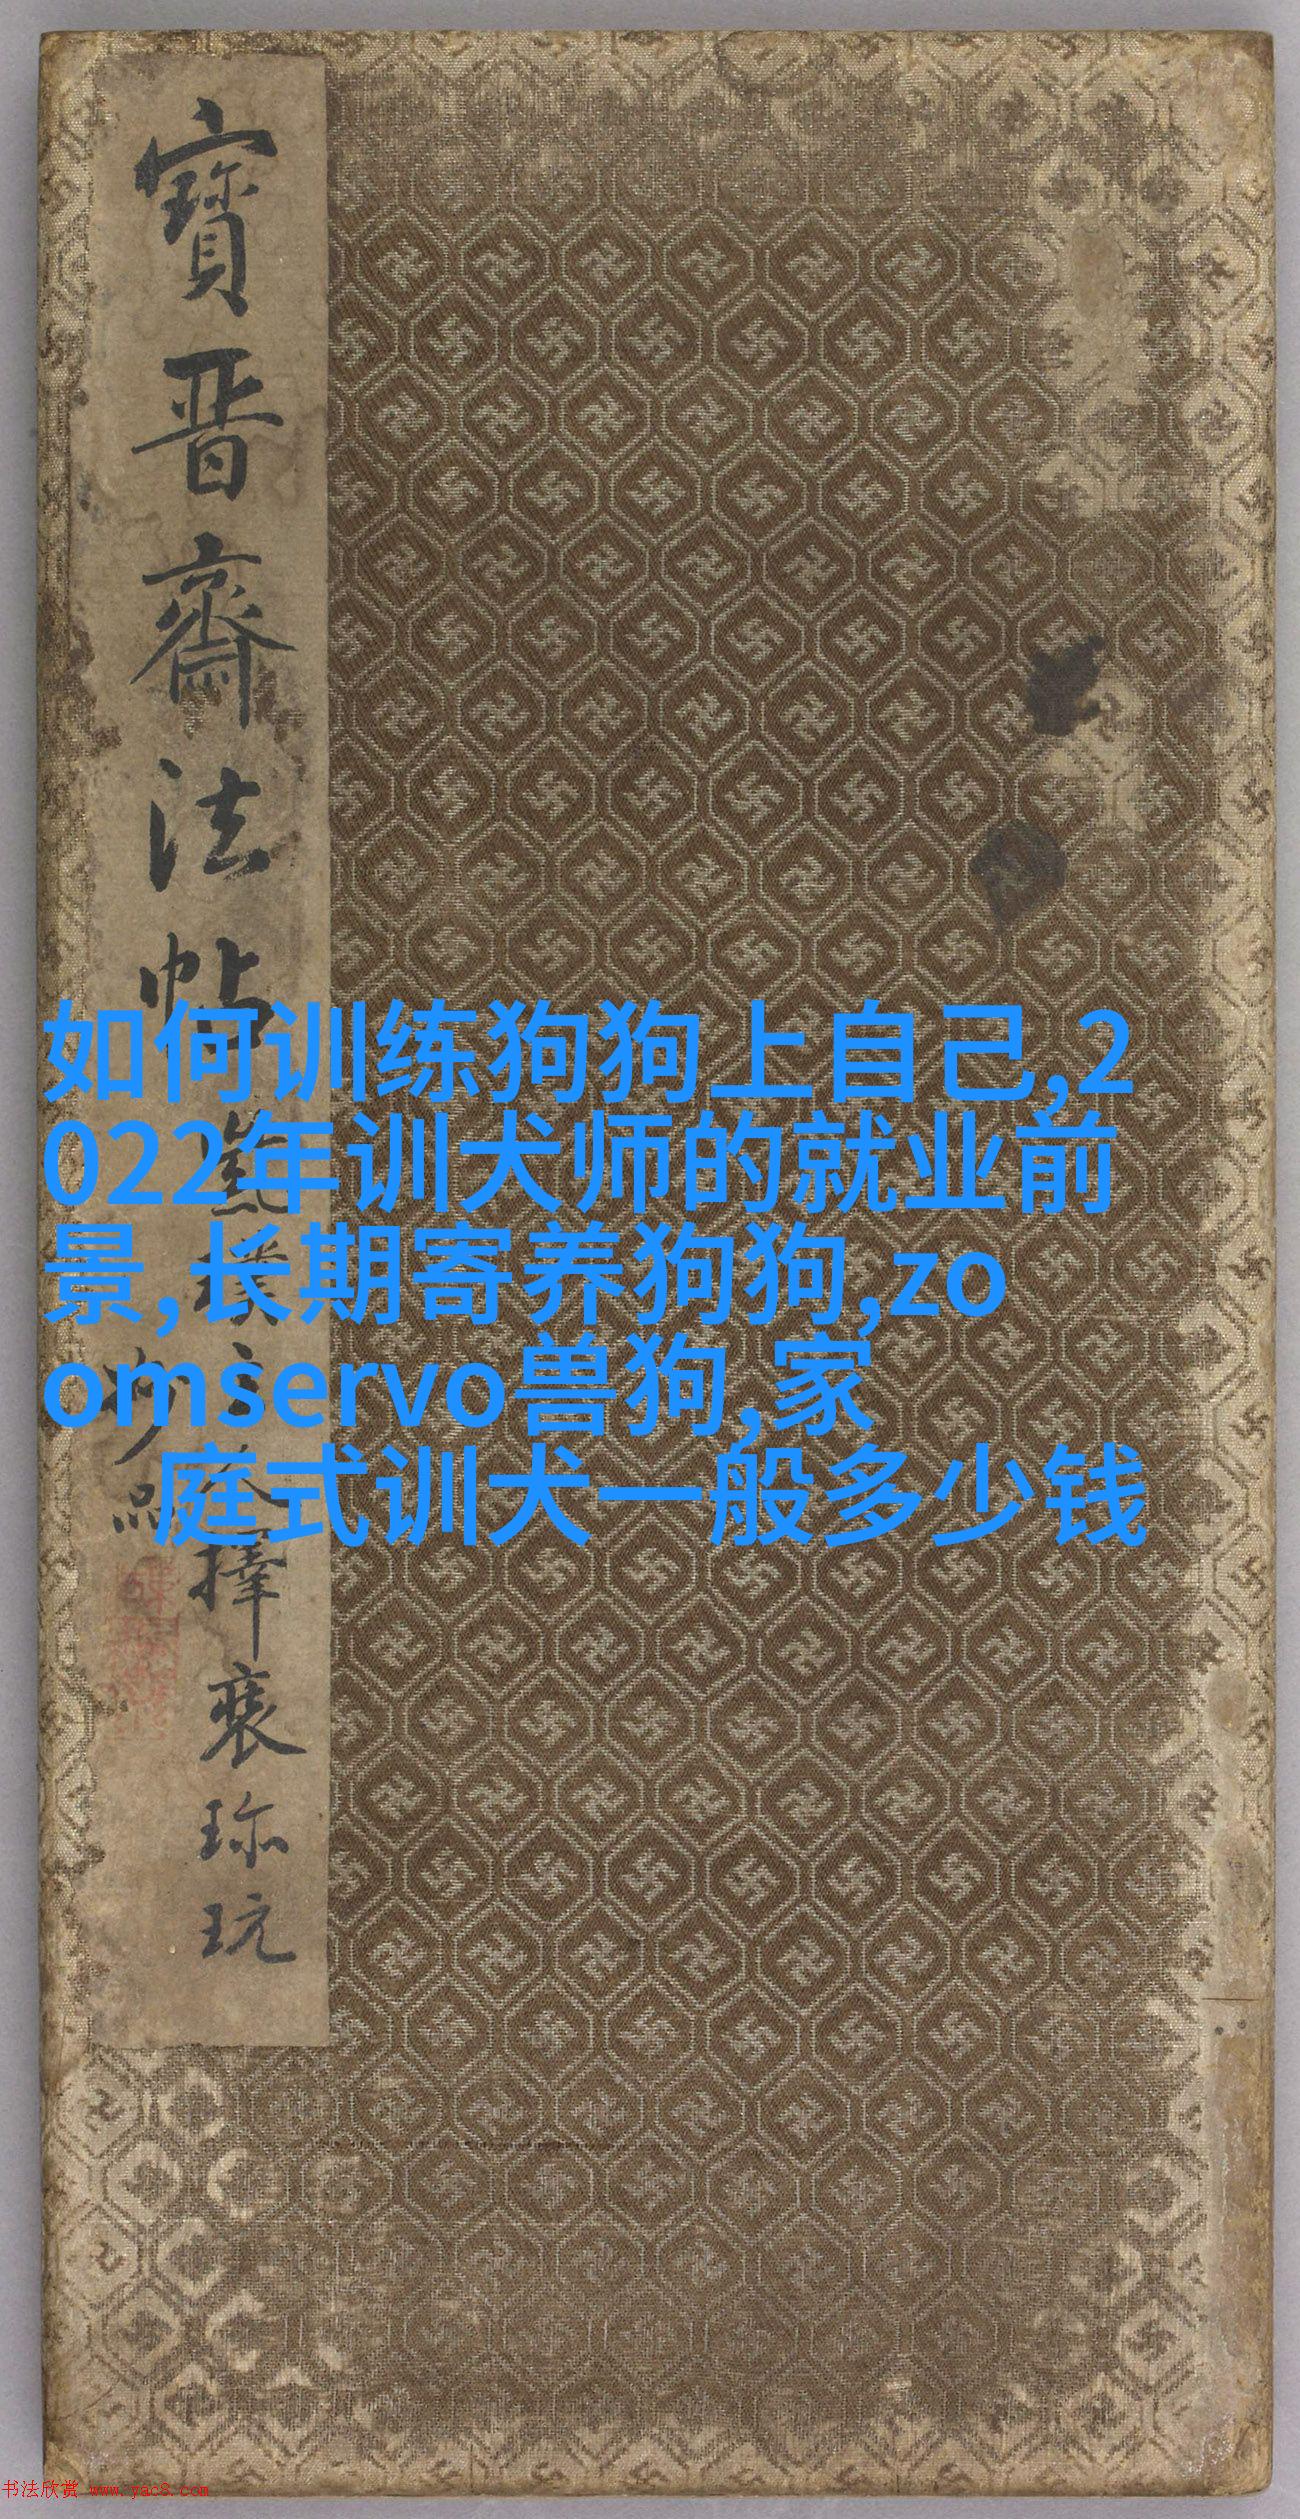 寶晋齋法帖
裴珎玩
如何训练狗狗上自己,2
022年训犬师的就业前
景,长期寄养狗狗,zo
omservo兽狗,家
庭式训犬一般多少钱
书法欣赏 www.yac8.com